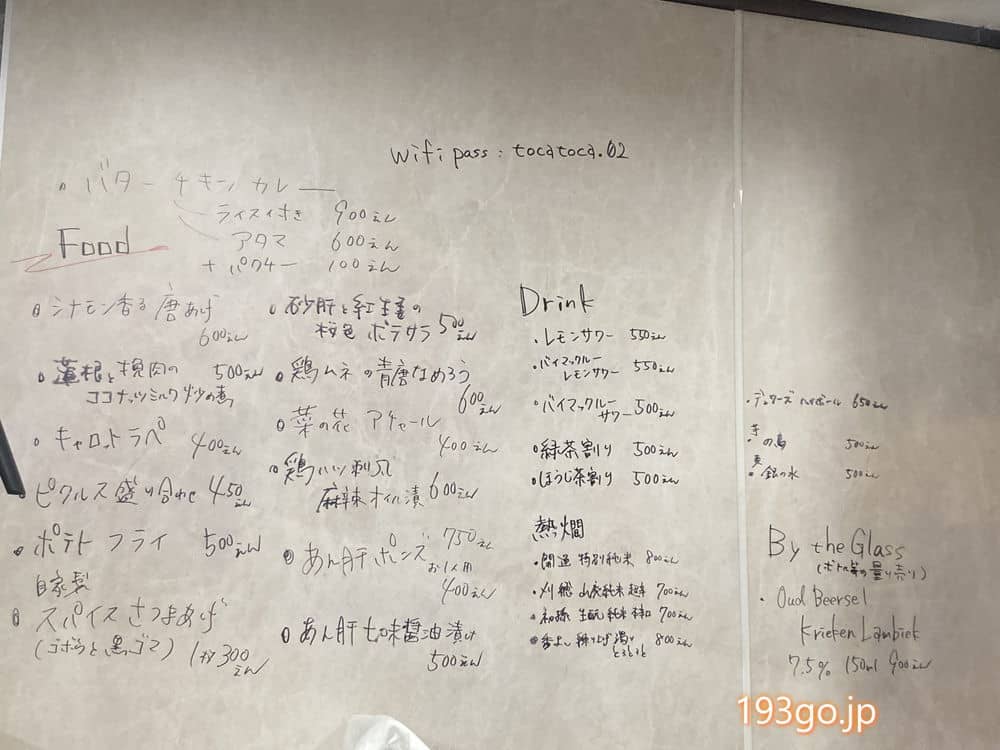 wifi pass : tocatoca.02
バターチキンカレー
ライス付き 900えん
アタマ 600えん
+ パクチー 100えん
Food
シナモン香る唐あげ
600えん
蓮根と挽肉の 500えん
ココナッツミルク
キャロットラペ
400えん
ピクルス盛り合わせ 450えん
ポテトフライ 500えん
自家製
スパイスさつまあげ
(ゴボウと黒ゴマ) 1ヶ300えん
砂肝と紅生姜の
桜色 ポテサラ 500えん
鶏ムネの青唐なめろう
600えん
菜の花アチャール
400えん
鶏ハツ刺し
麻辣オイル漬 600えん
あん肝ポンズ 750えん
お1人用
400えん
あん肝七味醤油漬け
500えん
Drink
・レモンサワー 550えん
・バイマックルー
レモンサワー 550えん
・バイマックルー
サワー 500えん
緑茶割り 500えん
ほうじ茶割り 500えん
熱燗
・開運 特別純米 800えん
・刈穂 山廃純米超辛 700えん
・初孫 生酛純米本和 700えん
800えん
ハイボール 650えん
芋
の鳥 500えん
麦
銀の水 500えん
By the Glass
(ボトル等の量り売り)
・Oud Beersel
Krieken Lambiek
7.5% 150ml 900えん
193go.jp